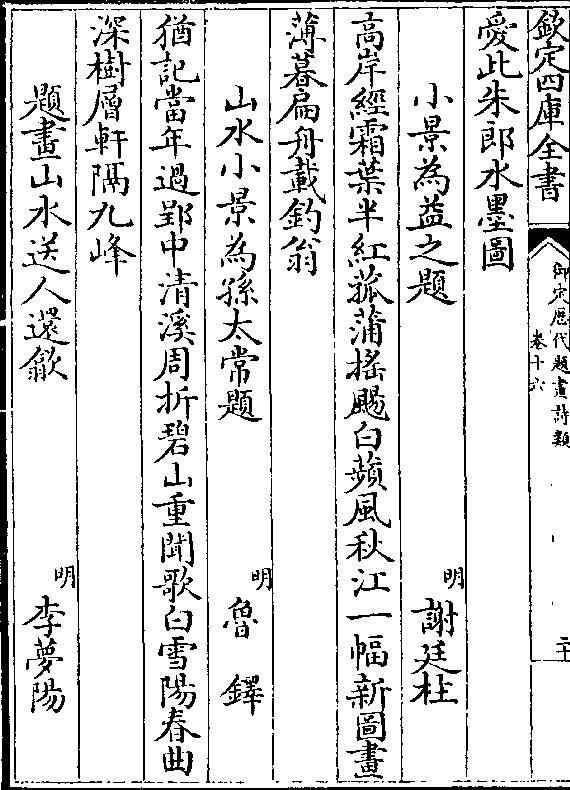 欽定四庫全書
御定歷代題畫詩類
卷十六
二十
愛此朱郎水墨圖
小景為益之題
明
謝廷柱
高岸經霜葉半紅菰蒲搖颺白蘋風秋江一幅新圖畫
薄暮扁舟載釣翁
山水小景為孫太常題
明
魯鐸
猶記當年過郢中清溪周折碧山重聞歌白雪陽春曲
深樹層軒隔九峰
題畫山水送人還歙
明
李夢陽